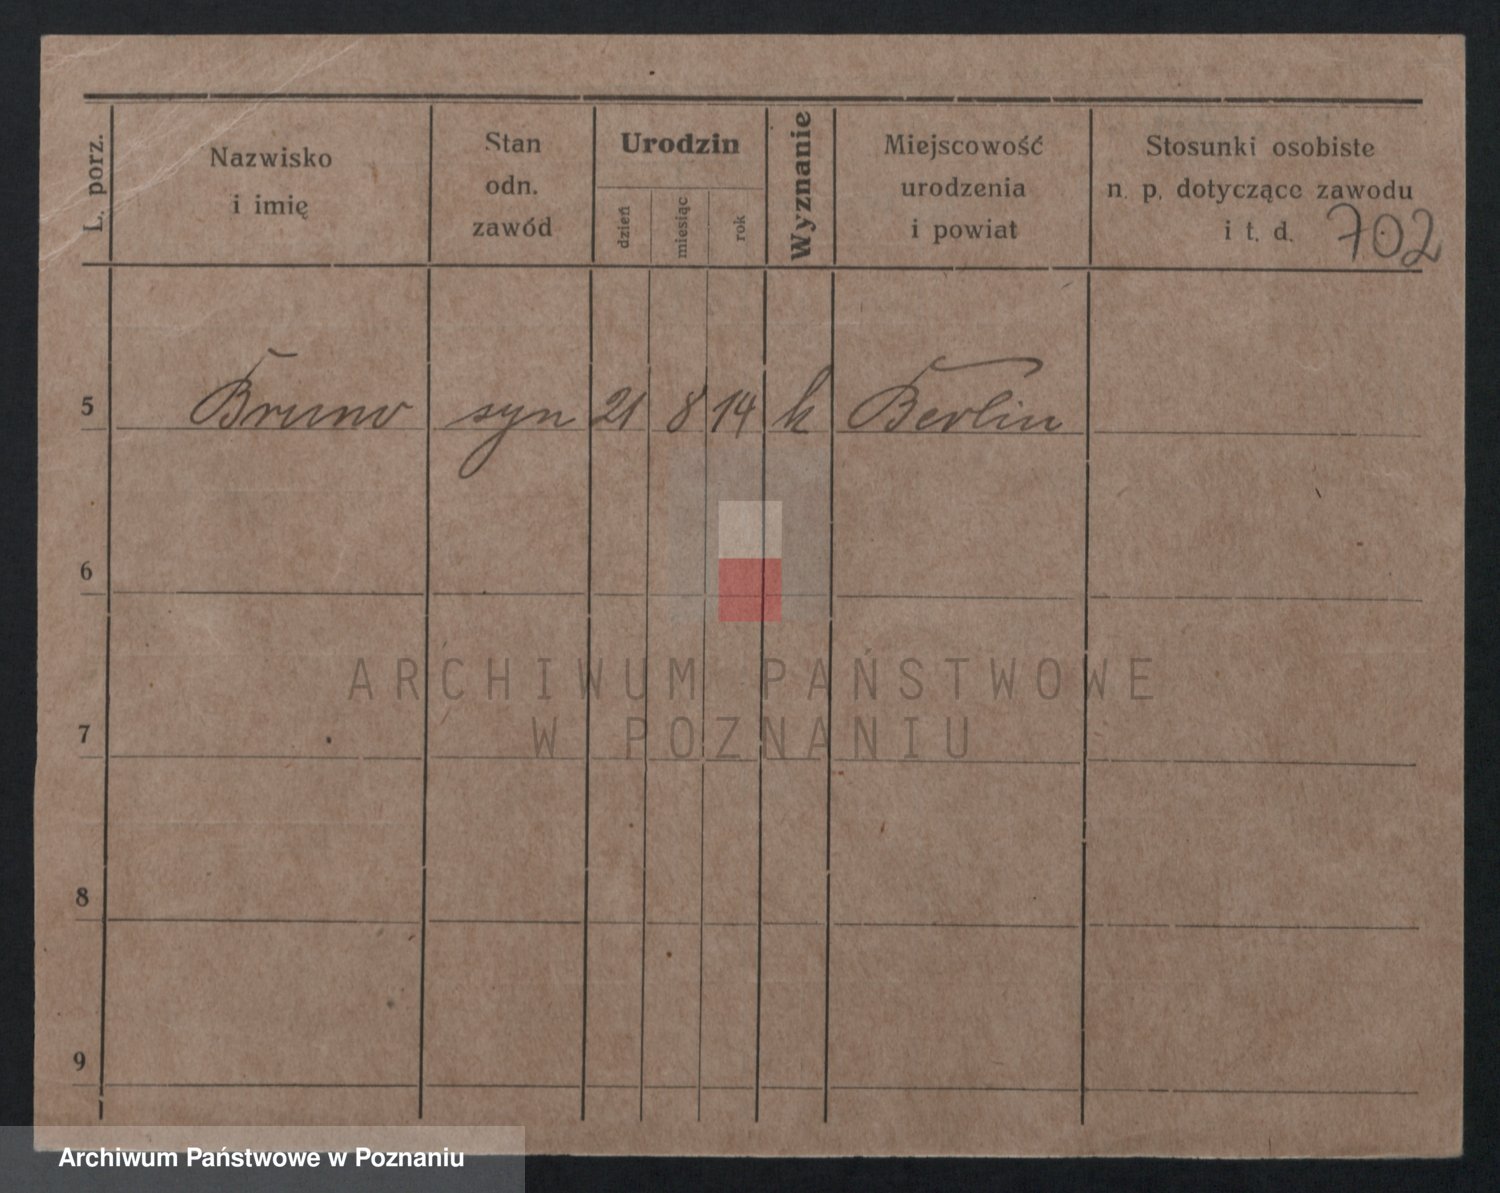 L. porz.
Nazwisko
i imię
Stan
odn.
zawód
Urodzin
dzień
miesiąc
rok
Wyznanie
Miejscowość
urodzenia
i powiat
Stosunki osobiste
n. p. dotyczące zawodu
i t. d.
702
5 Bruno syn 21 8 14 k Berlin
6
7
8
9
ARCHIWUM PAŃSTWOWE
W POZNANIU
Archiwum Państwowe w Poznaniu